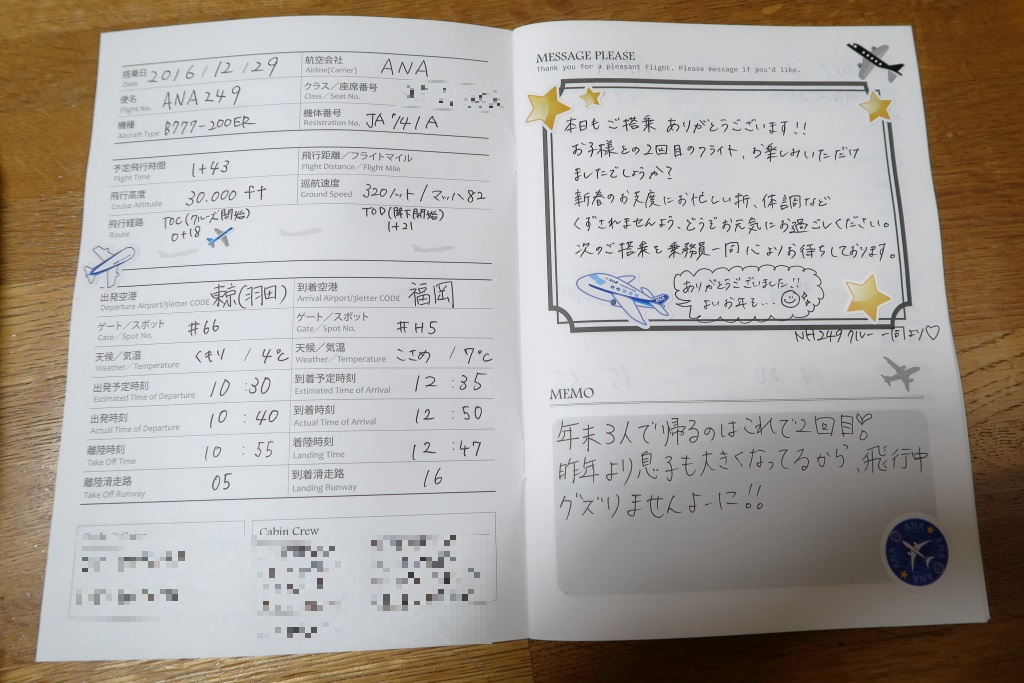 搭乗日 Date 2016/12/29 航空会社 Airline(Carrier) ANA
便名 Flight No. ANA249 クラス/座席番号 Class/Seat No.
機種 Aircraft Type B777-200ER 機体番号 Resistration No. JA741A
予定飛行時間 Flight Time 1+43 飛行距離/フライトマイル Flight Distance/Flight Mile
飛行高度 Cruise Altitude 30.000 ft 巡航速度 Ground Speed 320ノット/マッハ82
飛行経路 Route TOC(クルーズ開始) TOD(降下開始)
0+18 1+21
出発空港 Departure Airport/3letter CODE 東京(羽田) 到着空港 Arrival Airport/3letter CODE 福岡
ゲート/スポット Gate/Spot No. #66 ゲート/スポット Gate/Spot No. #H5
天候/気温 Weather/Temperature くもり / 4℃ 天候/気温 Weather/Temperature こさめ / 7℃
出発予定時刻 Estimated Time of Departure 10:30 到着予定時刻 Estimated Time of Arrival 12:35
出発時刻 Actual Time of Departure 10:40 到着時刻 Actual Time of Arrival 12:50
離陸時刻 Take Off Time 10:55 着陸時刻 Landing Time 12:47
離陸滑走路 Take Off Runway 05 到着滑走路 Landing Runway 16
Cabin Crew
MESSAGE PLEASE
Thank you for a pleasant flight. Please message if you'd like.
本日もご搭乗 ありがとうございます!!
お子様との2回目のフライト、お楽しみいただけ
ましたでしょうか?
新春のお支度にお忙しい折、体調など
くずされませんよう、どうぞお元気にお過ごしください。
次のご搭乗を乗務員一同心よりお待ちしております。
ありがとうございました!!
よいお年を…
NH249 クルー 一同より♡
MEMO
年末3人で帰るのはこれで2回目!
昨年より息子も大きくなってるから、飛行中
グズりませんよーに!!
ANA ANA ANA ANA